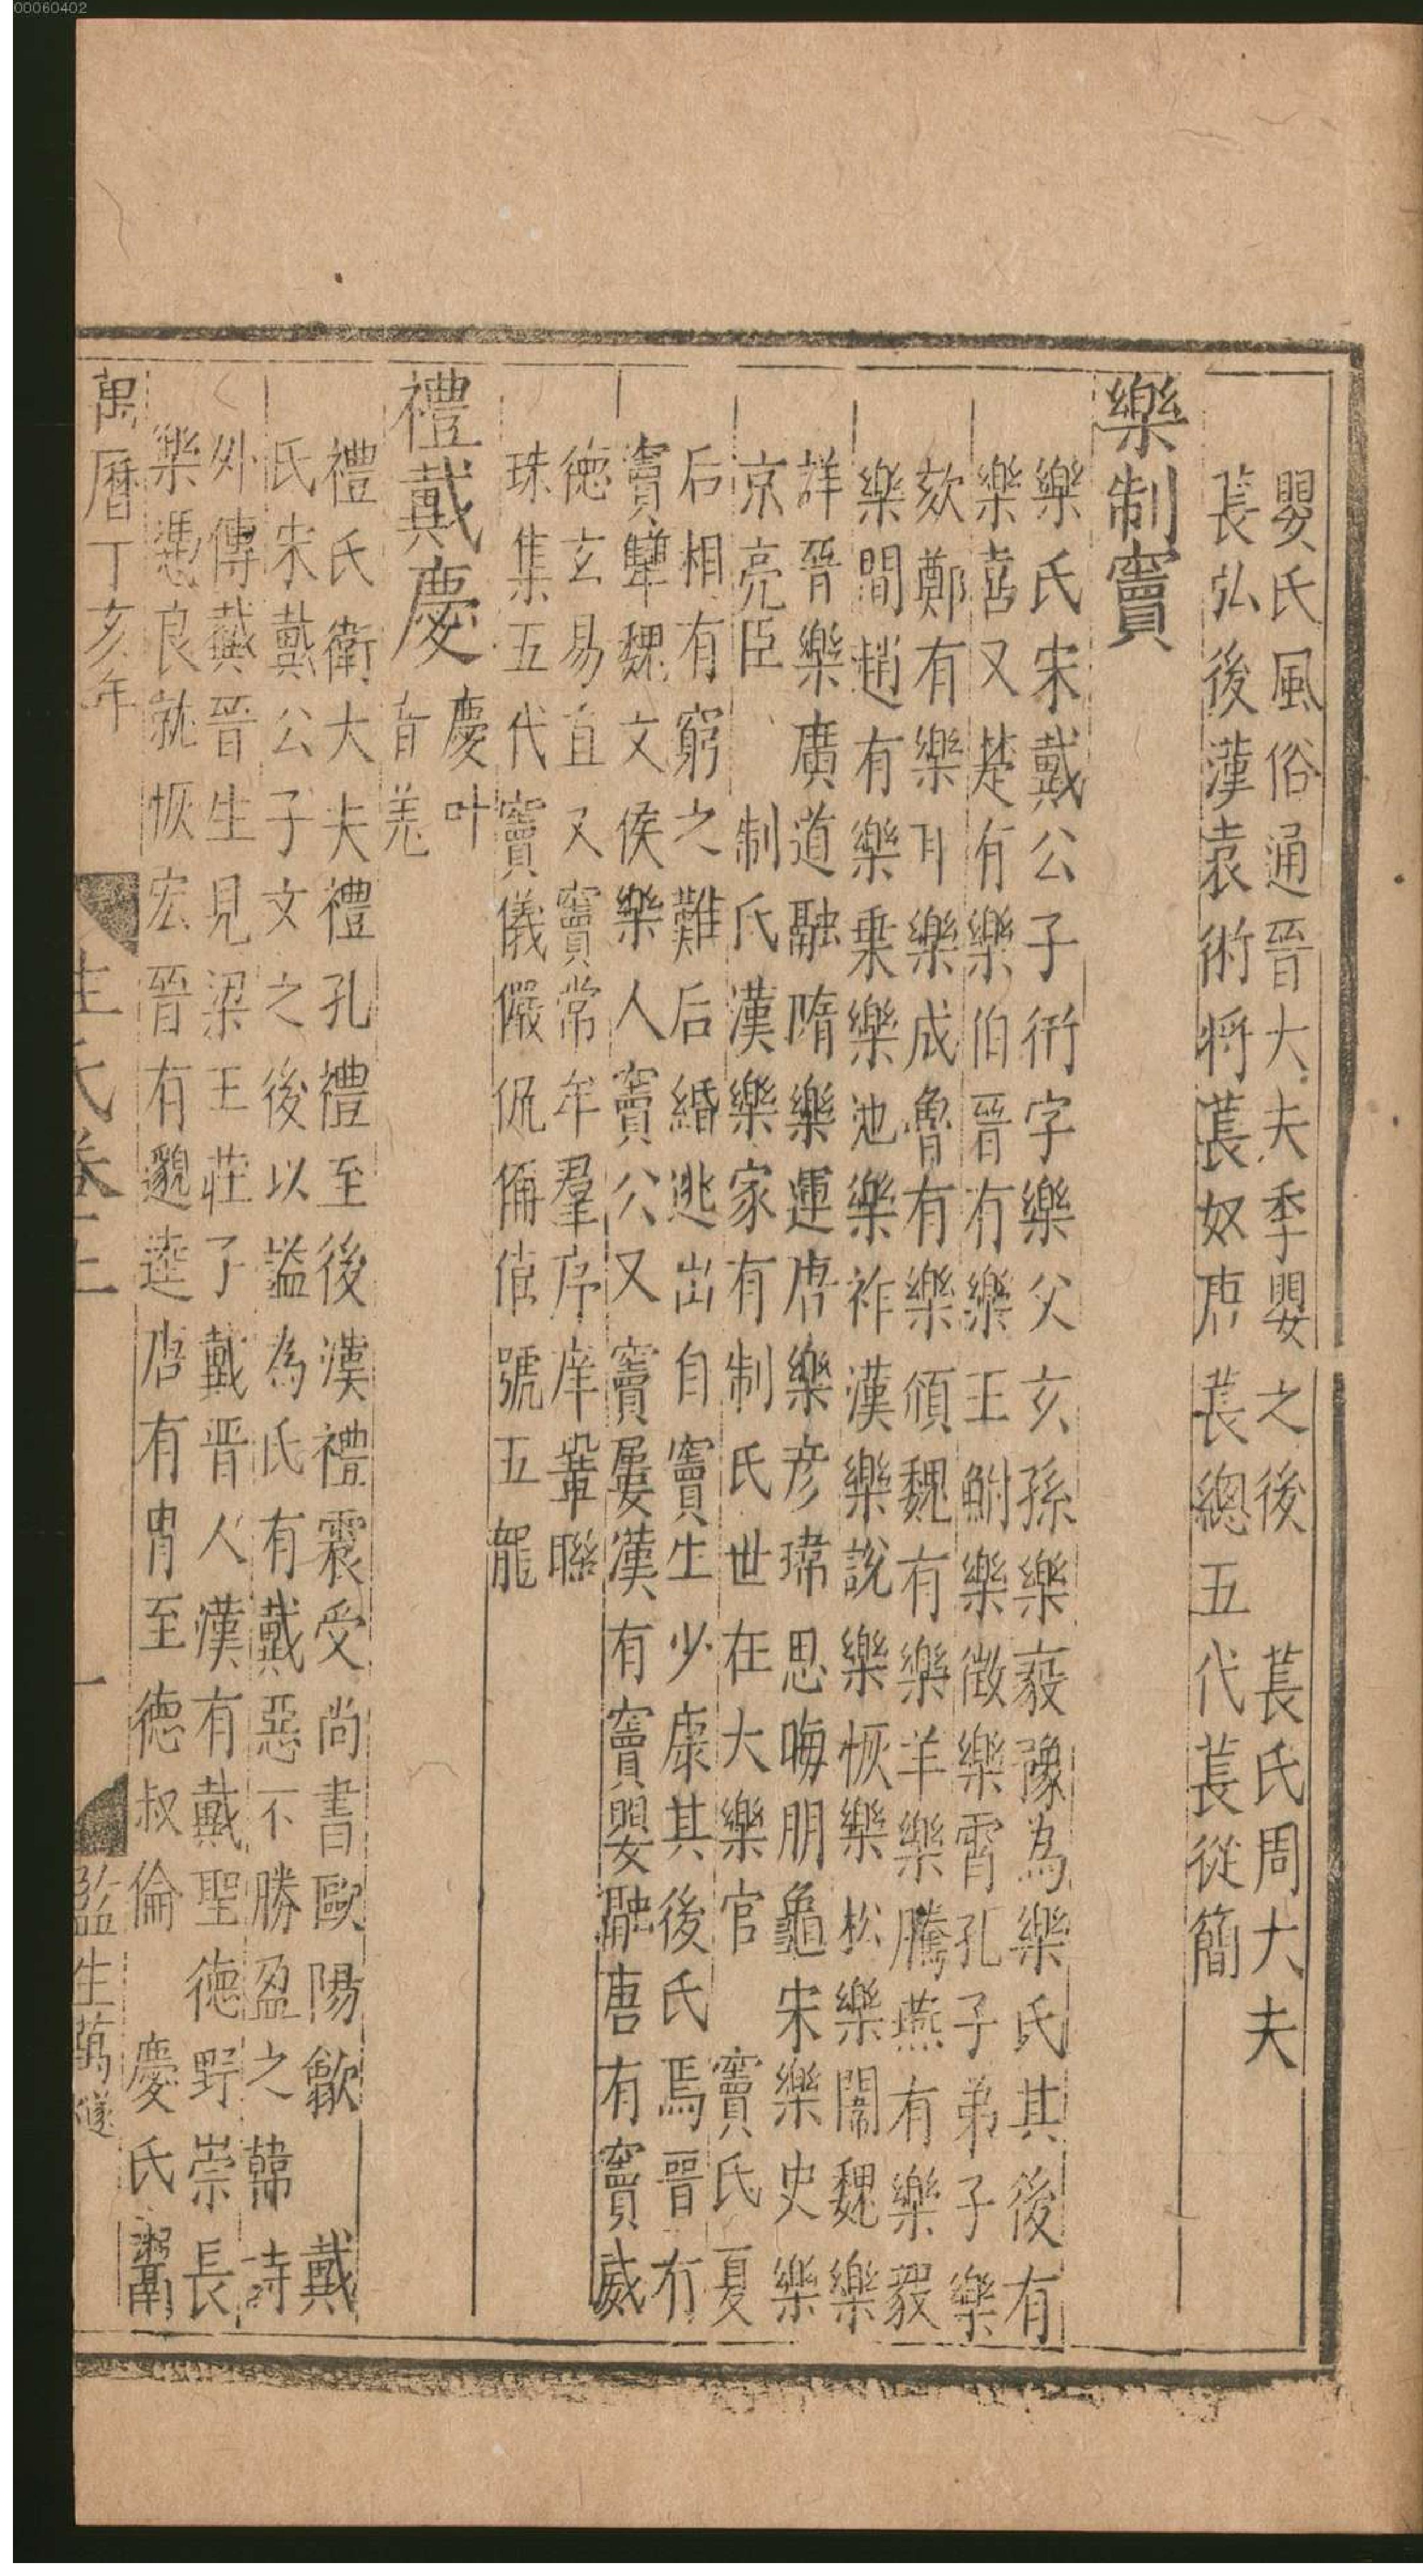 00060402
嬰氏風俗通晉大夫季嬰之後　萇氏周大夫
萇弘後漢袁術將萇奴唐萇總五代萇從簡
樂制竇
樂氏宋戴公子衎字樂父玄孫樂豫為樂氏其後有
樂喜又楚有樂伯晉有樂王鮒樂徵樂霄孔子弟子樂
欬鄭有樂耳樂成魯有樂頎魏有樂羊樂騰燕有樂毅
樂間趙有樂乗樂池樂祚漢樂說樂恢樂松樂闓魏樂
詳晉樂廣道融隋樂運唐樂彦瑋思晦朋龜宋樂史樂
京亮臣　制氏漢樂家有制氏世在大樂官　竇氏夏
后相有窮之難后緡逃出自竇生少康其後氏焉晉有
竇犨魏文侯樂人竇公又竇屢漢有竇嬰融唐有竇威
德玄易直又竇常牟羣序庠鞏聯
珠集五代竇儀儼侃偁僖號五龍
禮戴慶
慶叶
音羌
禮氏衛大夫禮孔禮至後漢禮震受尚書歐陽歙　戴
氏宋戴公子文之後以謚為氏有戴惡不勝盈之韓詩
外傳戴晉生見梁王莊子戴晉人漢有戴聖德野崇長
樂憑良就恢宏晉有邈逵唐有冑至德叔倫　慶氏
萬曆丁亥年
監生